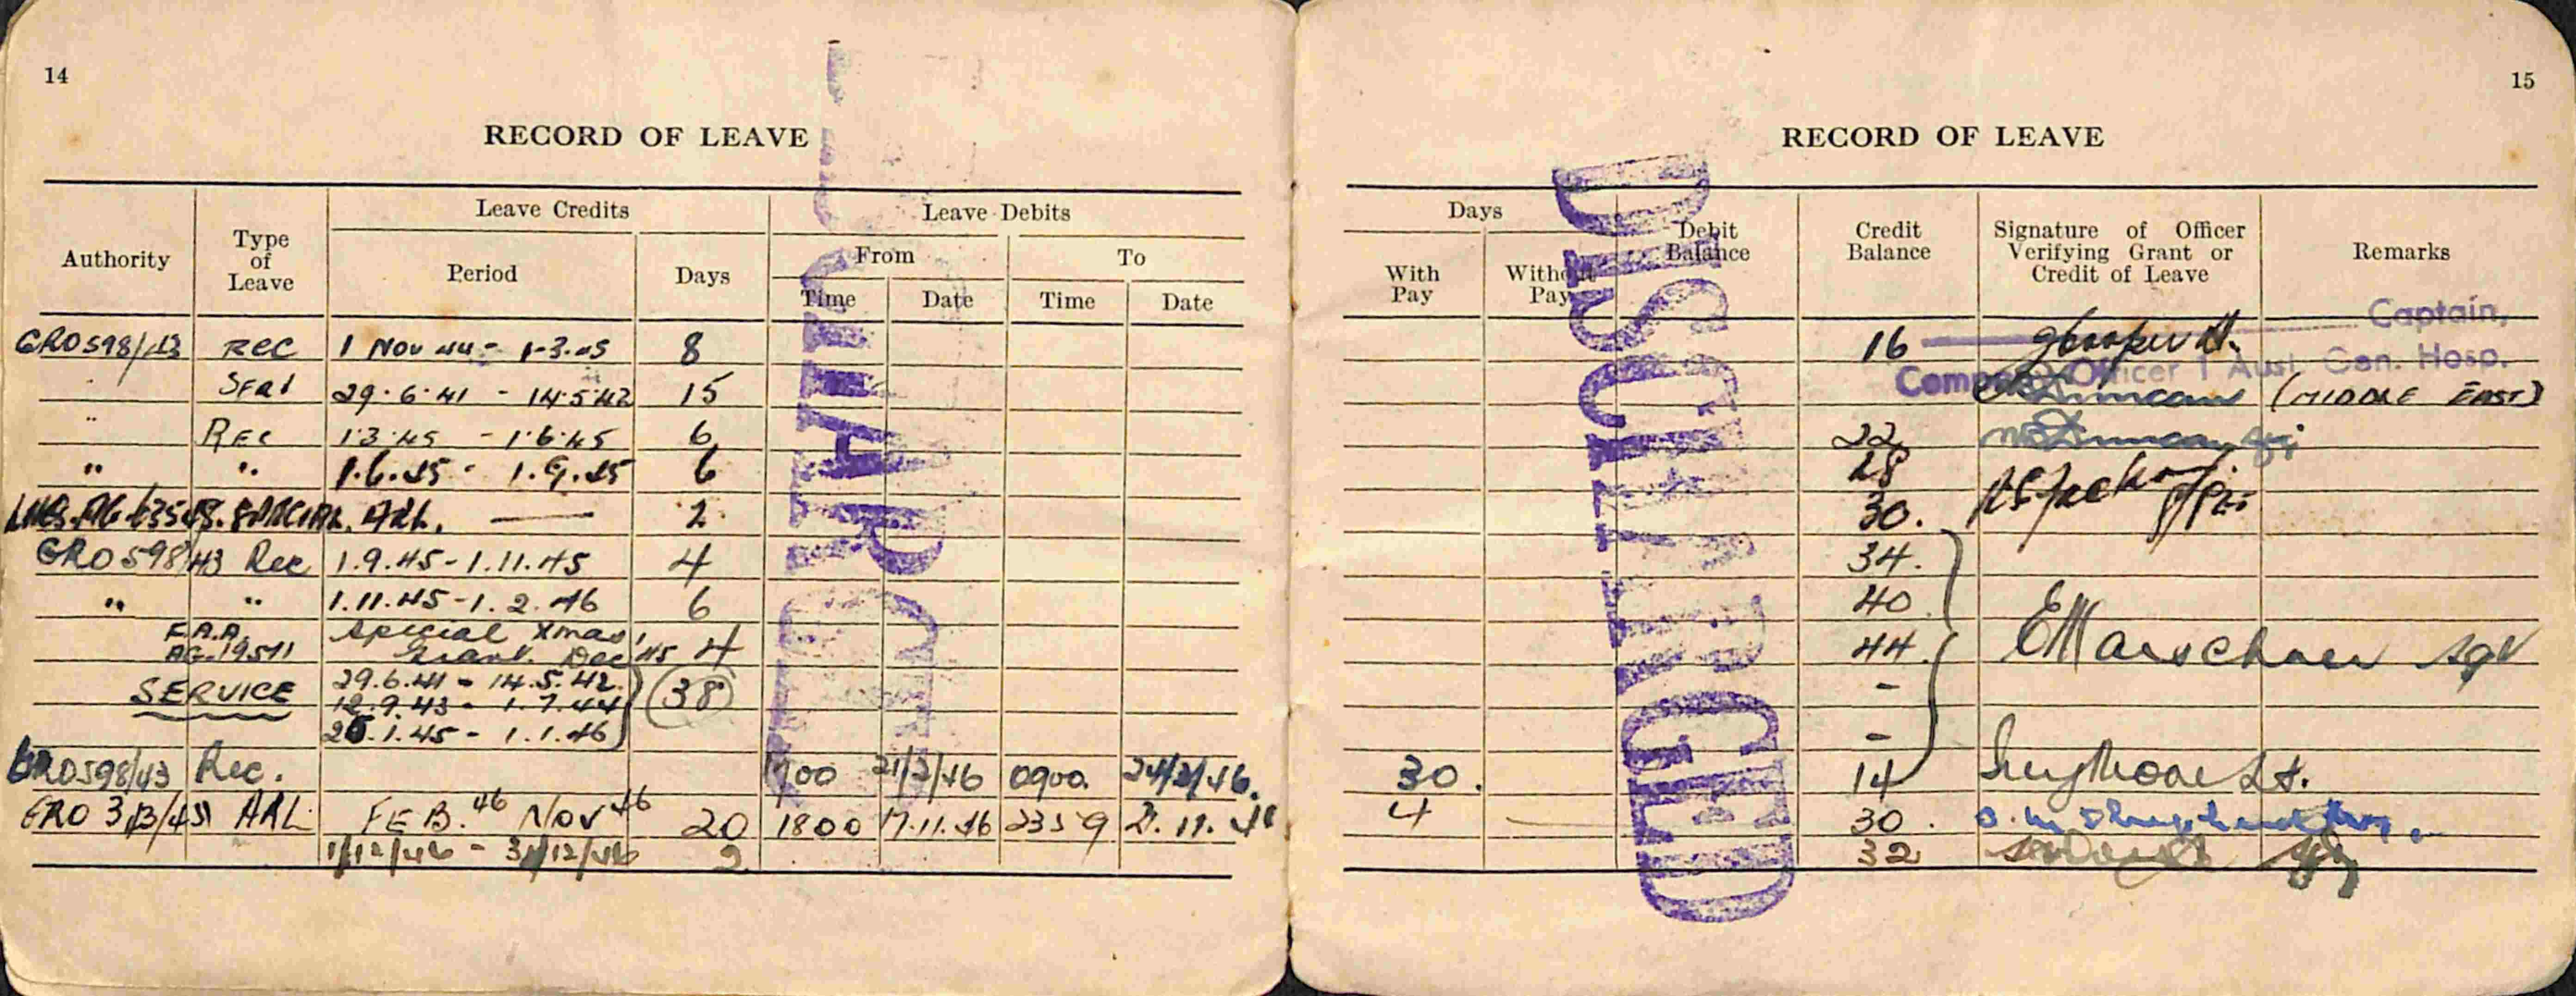 14
RECORD OF LEAVE
Authority Type of Leave Leave Credits Leave Debits
Period Days From To
Time Date Time Date
GRO 598/43 REC 1 NOV 44 - 1.3.45 8
" SERV 29.6.41 - 14.5.42 15
" REC 1.3.45 - 1.6.45 6
" " 1.6.45 - 1.9.45 6
SPECIAL. ARL. — 2
GRO 598/43 Rec 1.9.45 - 1.11.45 4
" " 1.11.45 - 1.2.46 6
AG.19511 Special Xmas Grant. Dec '45 4
SERVICE 29.6.41 - 14.5.42
12.9.43 - 1.7.44 38
1.45 - 1.1.46
GRO598/43 Rec. 21/2/46 0900 24/3/46.
ARL FEB. 46 NOV 46 20 1800 17.11.46 2359
1/12/46 - 31/12/46 2
DISCHARGED
15
RECORD OF LEAVE
Days Debit Balance Credit Balance Signature of Officer Verifying Grant or Credit of Leave Remarks
With Pay Without Pay
Captain,
16
Company Officer 1 Aust. Gen. Hosp.
(MIDDLE EAST)
22
28
30.
34.
40
44.
-
-
30. 14 Lt.
4 — 30.
32
DISCHARGED